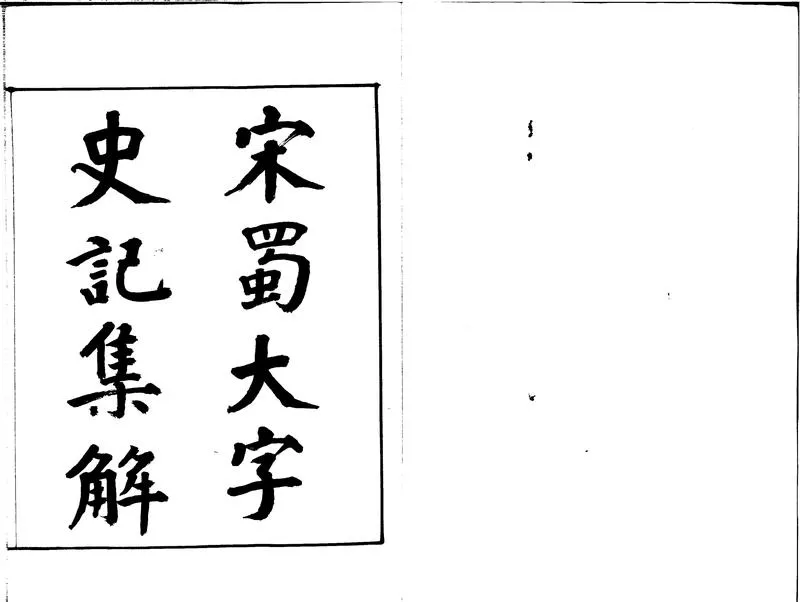 宋蜀大字
史記集解